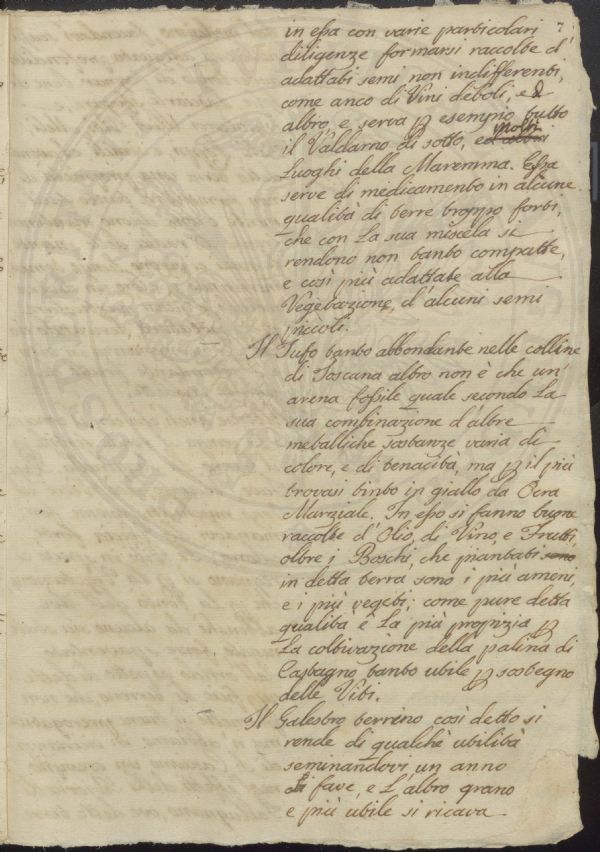 7
in essa con varie particolari
diligenze formarsi raccolte d'
adattabi semi non indifferenti,
come anco di Vini deboli, ed
altro, e serva p esempio tutto
il Valdarno di sotto, e molti
Luoghi della Maremma. Essa
serve di medicamento in alcune
qualità di terre troppo forti,
che con La sua miscela si
rendono non tanto compatte,
e così più adattate alla
Vegetazione, d'alcuni semi
piccoli.
Il Tufo tanto abbondante nelle colline
di Toscana altro non è che un'
arena fossile quale secondo La
sua combinazione d'altre
metalliche sostanze varia di
colore, e di tenacità, ma p il più
trovasi tinto in giallo da Ocra
Marziale. In esso si fanno buone
raccolte d'Olio, di Vino, e Frutti,
oltre i Boschi, che piantati sono
in detta terra sono i più ameni,
e i più vegeti; come pure detta
qualità è La più propizia p
La coltivazione della palina di
Castagno tanto utile p sostegno
delle Viti.
Il Galestro terrino così detto si
rende di qualche utilità
seminandovi un anno
di fave, e L'altro grano
e più utile si ricava